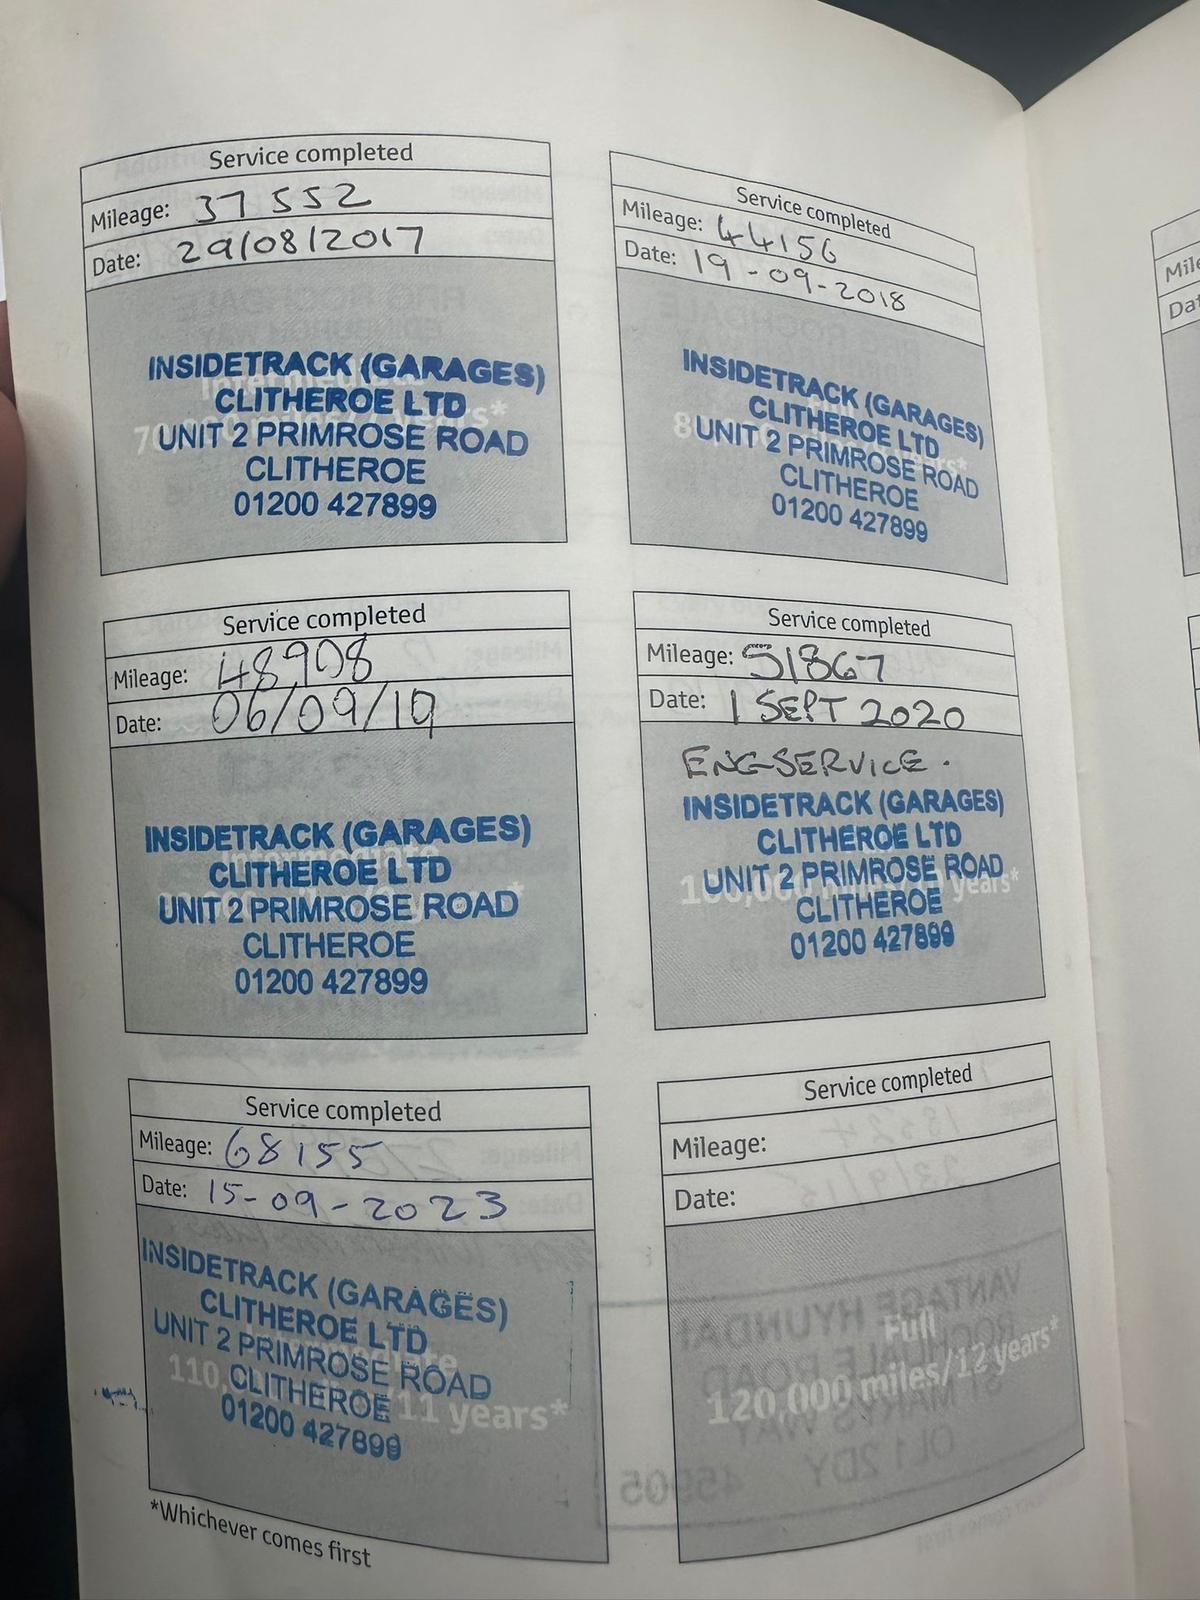 Service completed
Mileage: 37552
Date: 29/08/2017
INSIDETRACK (GARAGES)
CLITHEROE LTD
UNIT 2 PRIMROSE ROAD
CLITHEROE
01200 427899
Service completed
Mileage: 44156
Date: 19-09-2018
INSIDETRACK (GARAGES)
CLITHEROE LTD
UNIT 2 PRIMROSE ROAD
CLITHEROE
01200 427899
Service completed
Mileage: 48908
Date: 06/09/19
INSIDETRACK (GARAGES)
CLITHEROE LTD
UNIT 2 PRIMROSE ROAD
CLITHEROE
01200 427899
Service completed
Mileage: 51867
Date: 1 SEPT 2020
ENG-SERVICE.
INSIDETRACK (GARAGES)
CLITHEROE LTD
UNIT 2 PRIMROSE ROAD
100,000 years*
CLITHEROE
01200 427899
Service completed
Mileage: 68155
Date: 15-09-2023
INSIDETRACK (GARAGES)
CLITHEROE LTD
UNIT 2 PRIMROSE ROAD
CLITHEROE
11 years*
01200 427899
Service completed
Mileage:
Date:
Full
120,000 miles/12 years*
*Whichever comes first